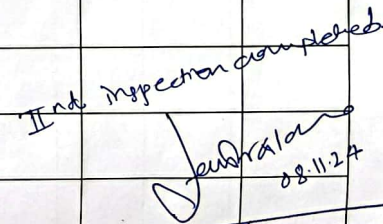 IInd inspection completed
08.11.24